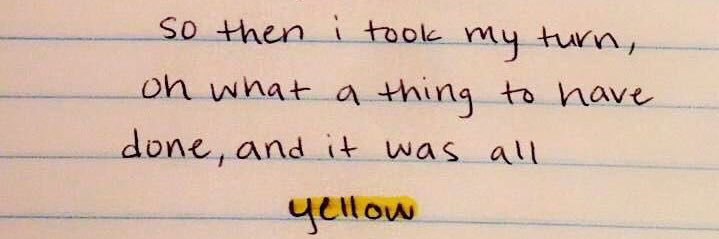 so then i took my turn,
oh what a thing to have
done, and it was all
yellow